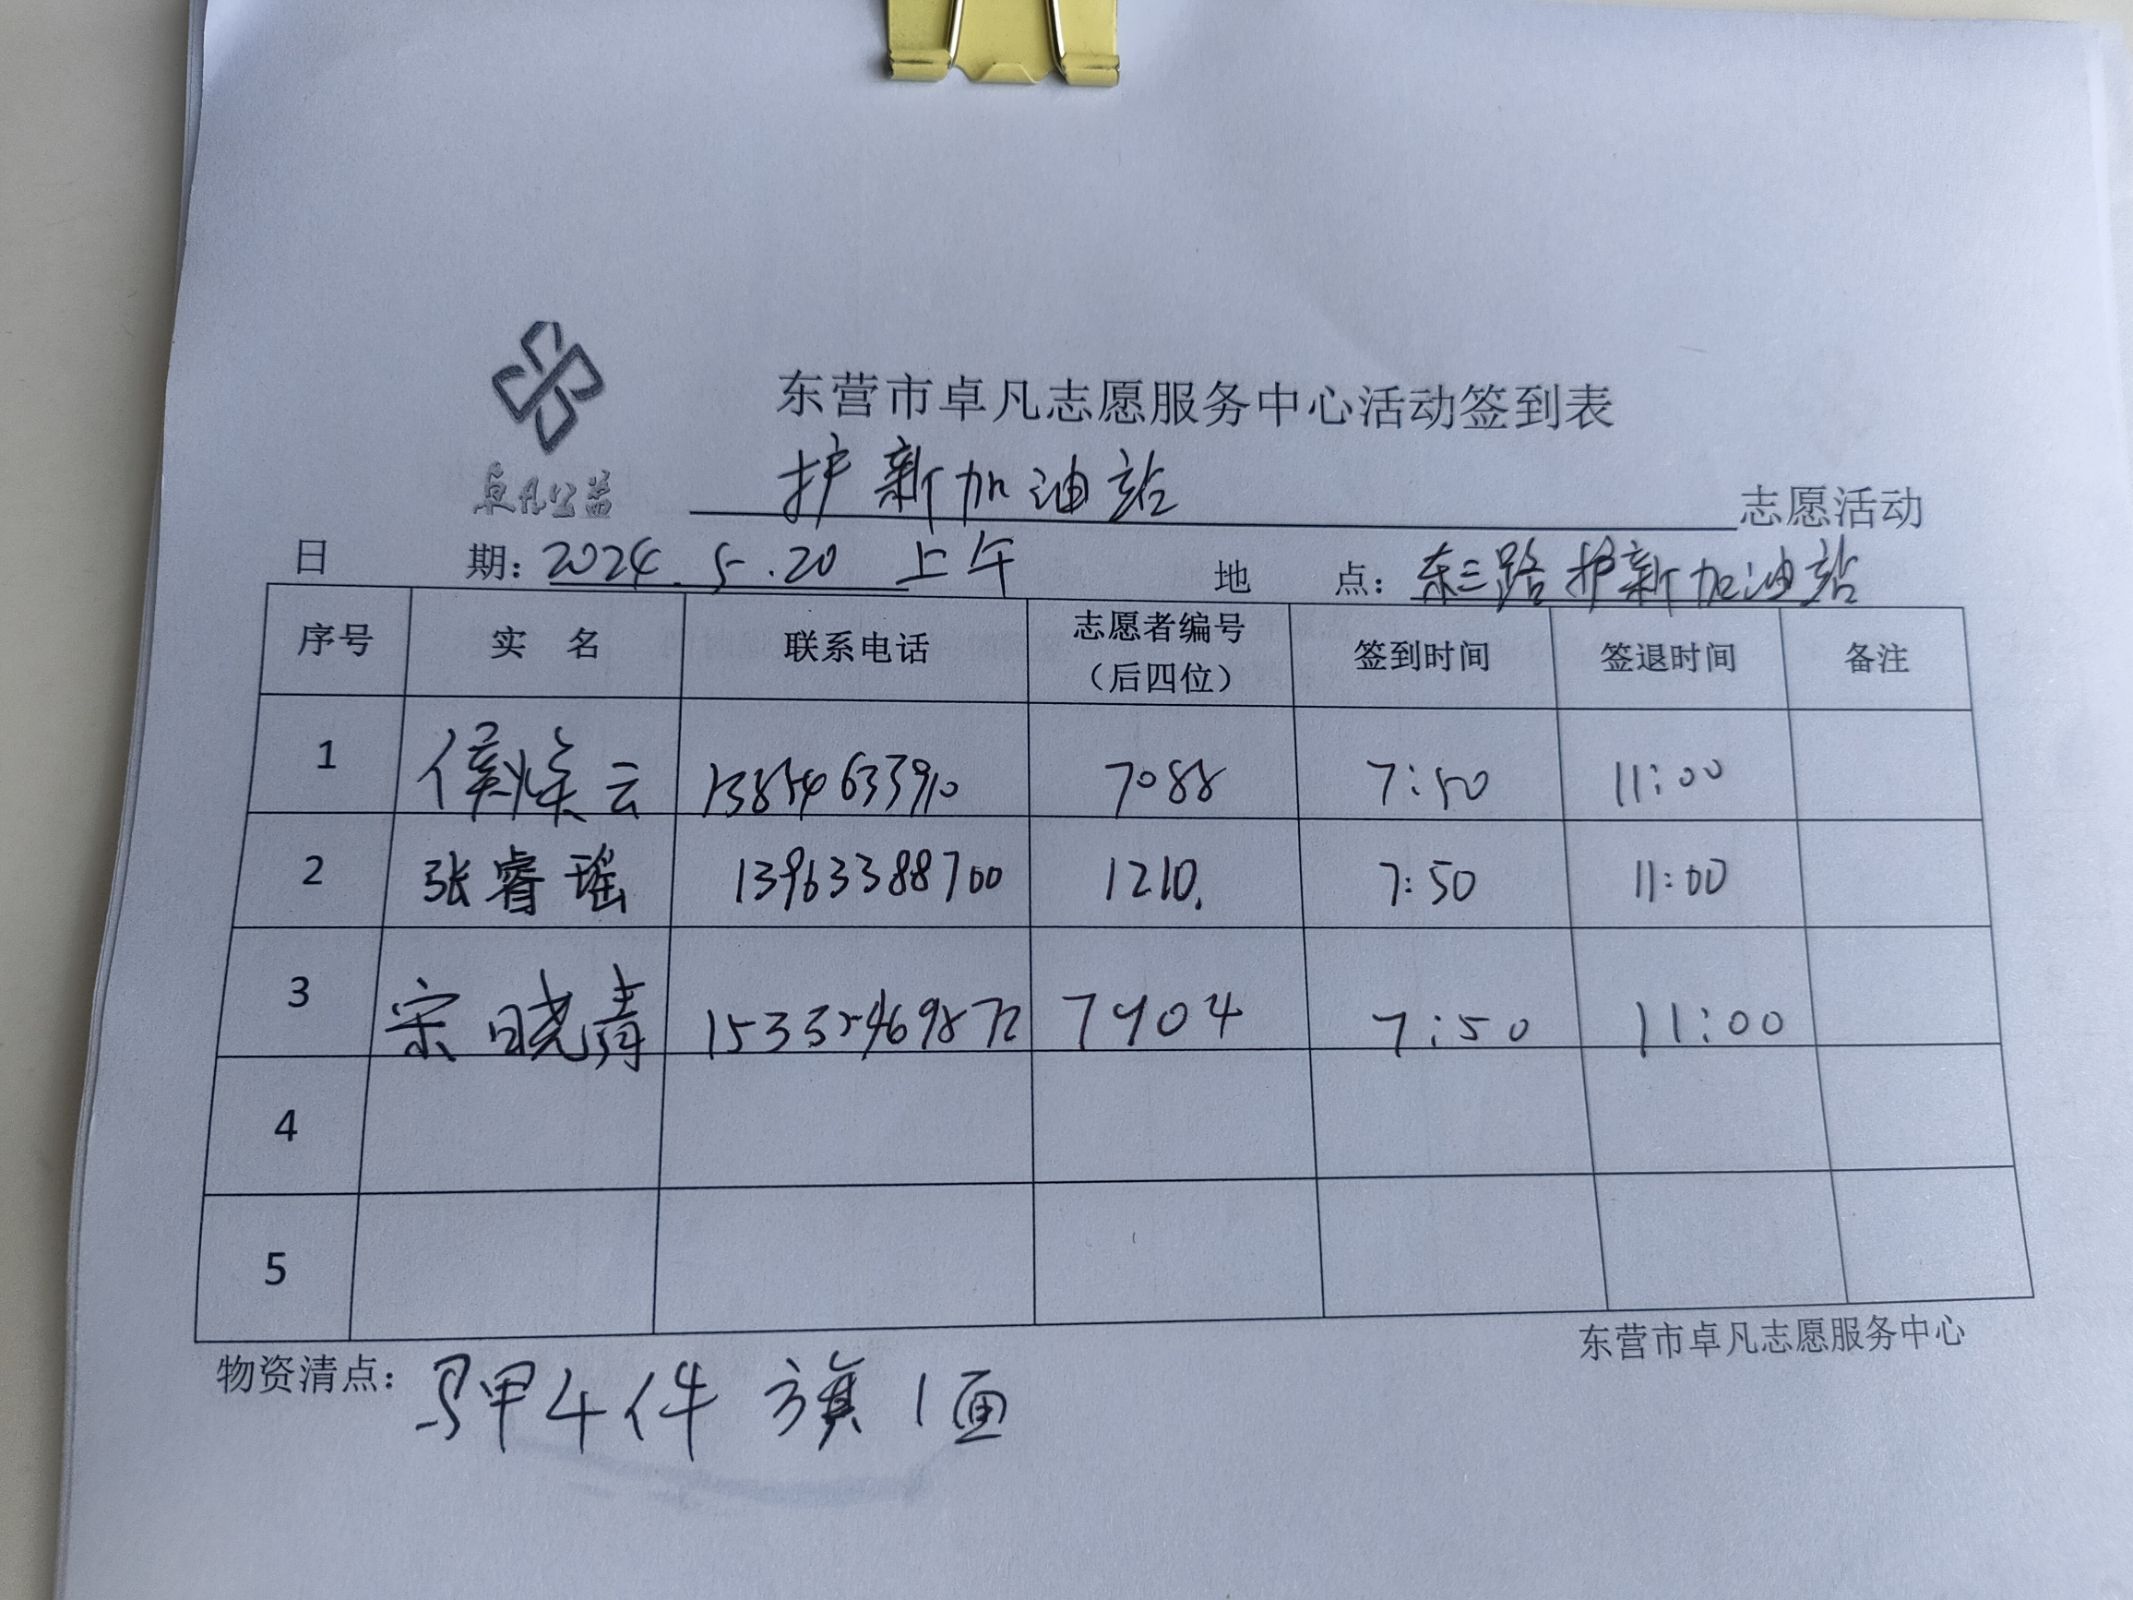 东营市卓凡志愿服务中心活动签到表
卓凡公益
护新加油站 志愿活动
日 期：2024.5.20 上午 地 点：东三路护新加油站
序号 实 名 联系电话 志愿者编号（后四位） 签到时间 签退时间 备注
1 侯焕云 13854633910 7088 7:50 11:00
2 张睿瑶 13963388700 1210. 7:50 11:00
3 宋晓青 15335469872 7904 7:50 11:00
4
5
东营市卓凡志愿服务中心
物资清点：马甲4件 旗1面